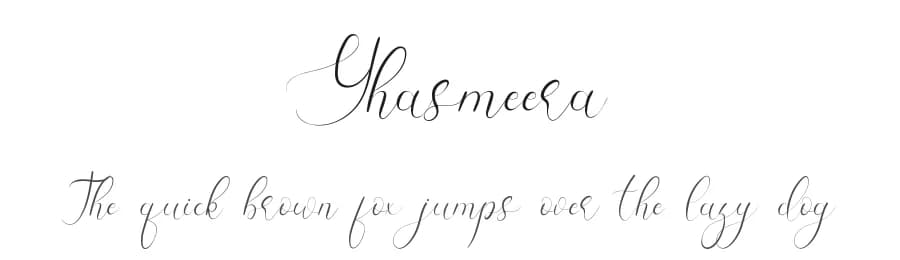 Yhasmeera
The quick brown fox jumps over the lazy dog